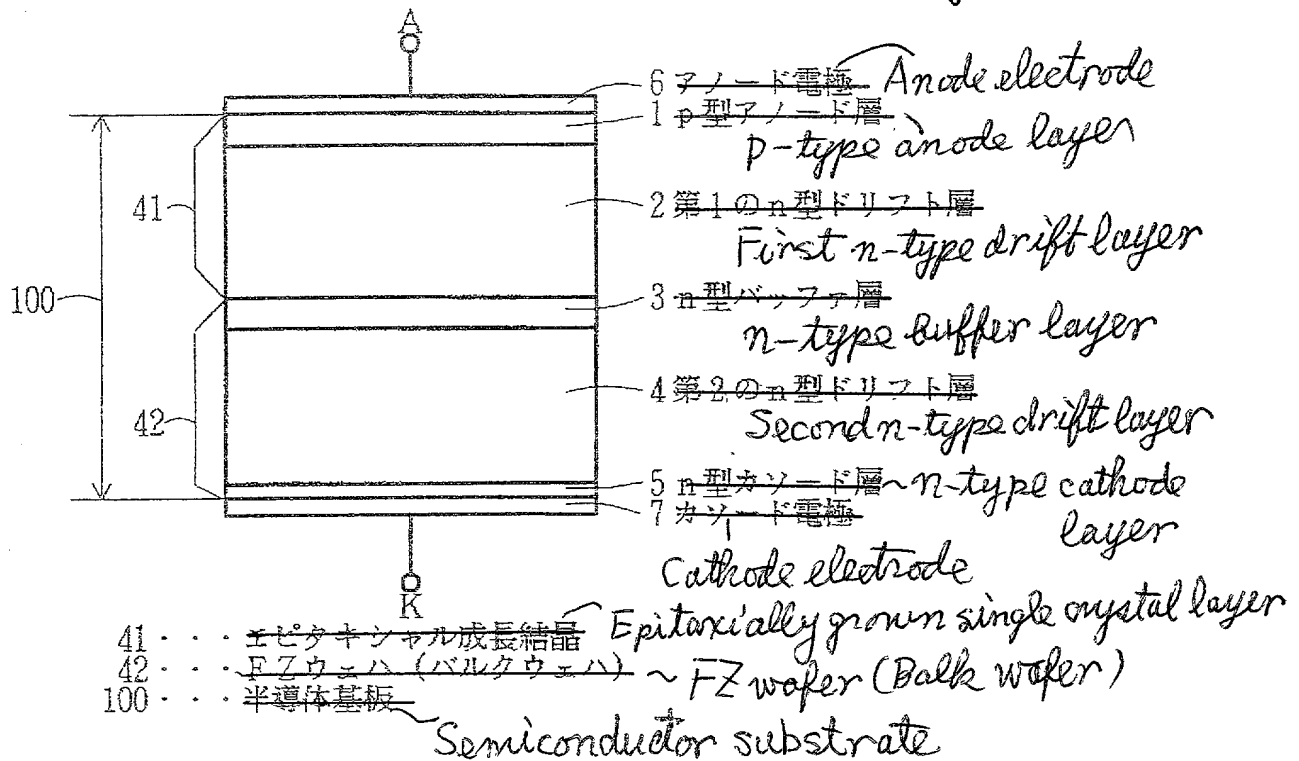 A
6 アノード電極 Anode electrode
1 p型アノード層
p-type anode layer
41
2 第1のn型ドリフト層
First n-type drift layer
100
3 n型バッファ層
n-type buffer layer
4 第2のn型ドリフト層
42
Second n-type drift layer
5 n型カソード層 ~ n-type cathode
layer
7 カソード電極
Cathode electrode
K
41・・・エピタキシャル成長結晶 Epitaxially grown single crystal layer
42・・・FZウェハ (バルクウェハ) ~ FZ wafer (Balk wafer)
100・・・半導体基板
Semiconductor substrate